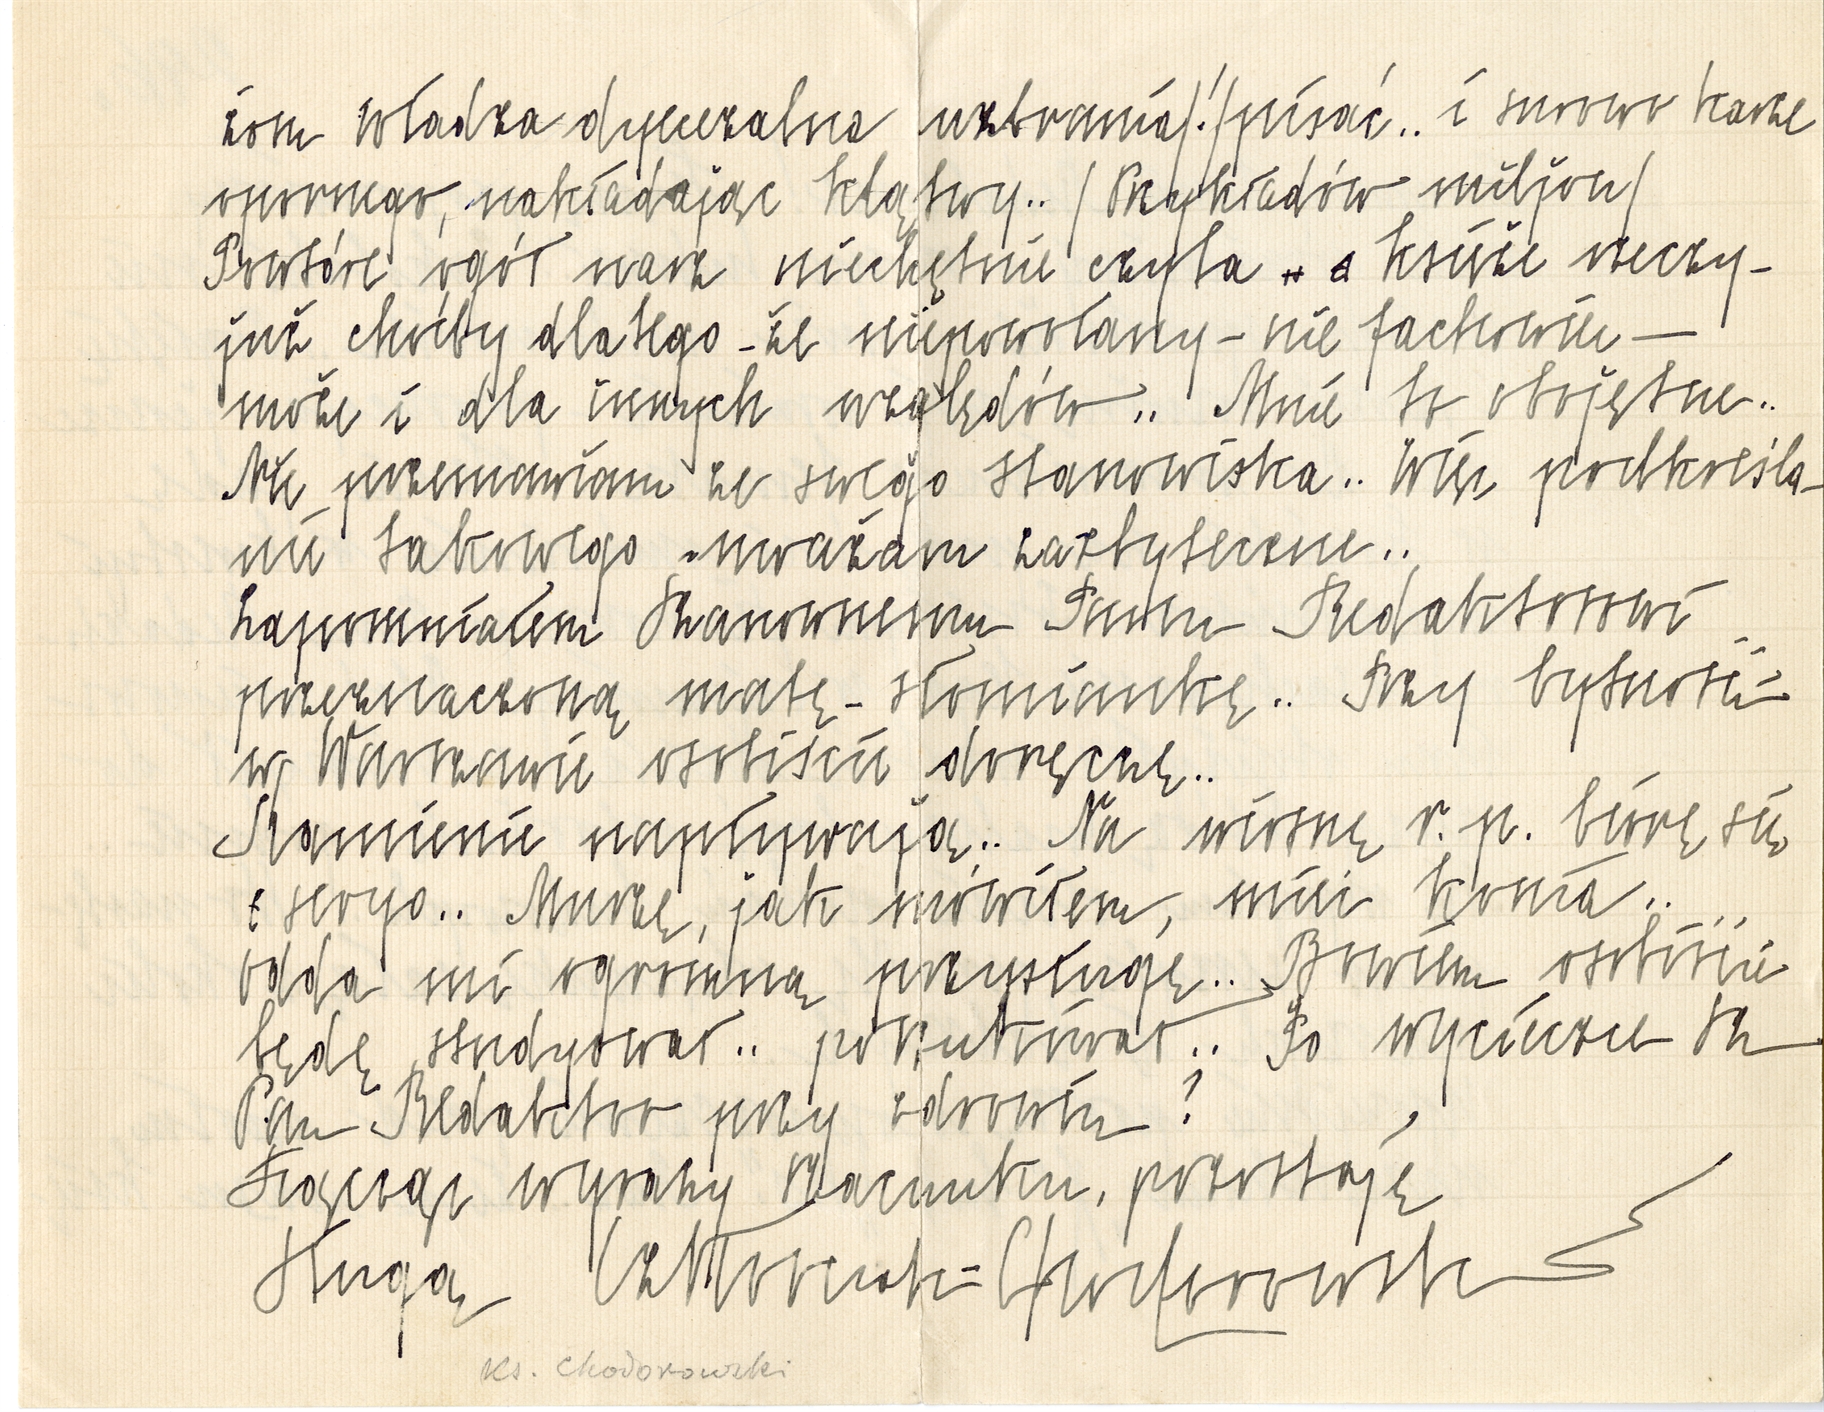 żom władza dyecezalna wzbrania /!/ pisać.. i surowo karze
opornego, nakładając klątwy.. / Przykładów miljon /
Powtóre ogół nasz niechętnie czyta księże rzeczy -
już choćby dlatego - że niepowołany - nie fachowiec —
może i dla innych względów.. Mnie to obojętne..
Nie przemawiam ze swego stanowiska.. Więc podkreśla-
nie takowego uważam za zbyteczne..
Zapomniałem Szanownemu Panu Redaktorowi
przeznaczoną matę - słomiankę.. Przy bytności
w Warszawie osobiście doręczę..
Kamienie napływają.. Na wiosnę r. p. biorę się
z seryo.. Muszę, jak mówiłem, mieć konia..
odda mi ogromną przysługę.. Bowiem osobiście
będę studyował.. poszukiwał.. Po wycieczce Sz
Pan Redaktor przy zdrowiu ?
Łącząc wyrazy szacunku, pozostaję
Sługą Chodorowski
Ks. Chodorowski